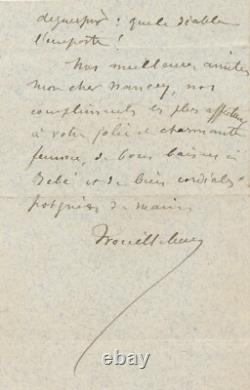 déguerpir : que le diable
l'emporte !
Nos meilleures amitiés
mon cher Nancey, nos
compliments les plus affectueux
à votre jolie et charmante
femme, de bons baisers à
Bébé et de bien cordiales
poignées de main
Trouillebert
© ebay